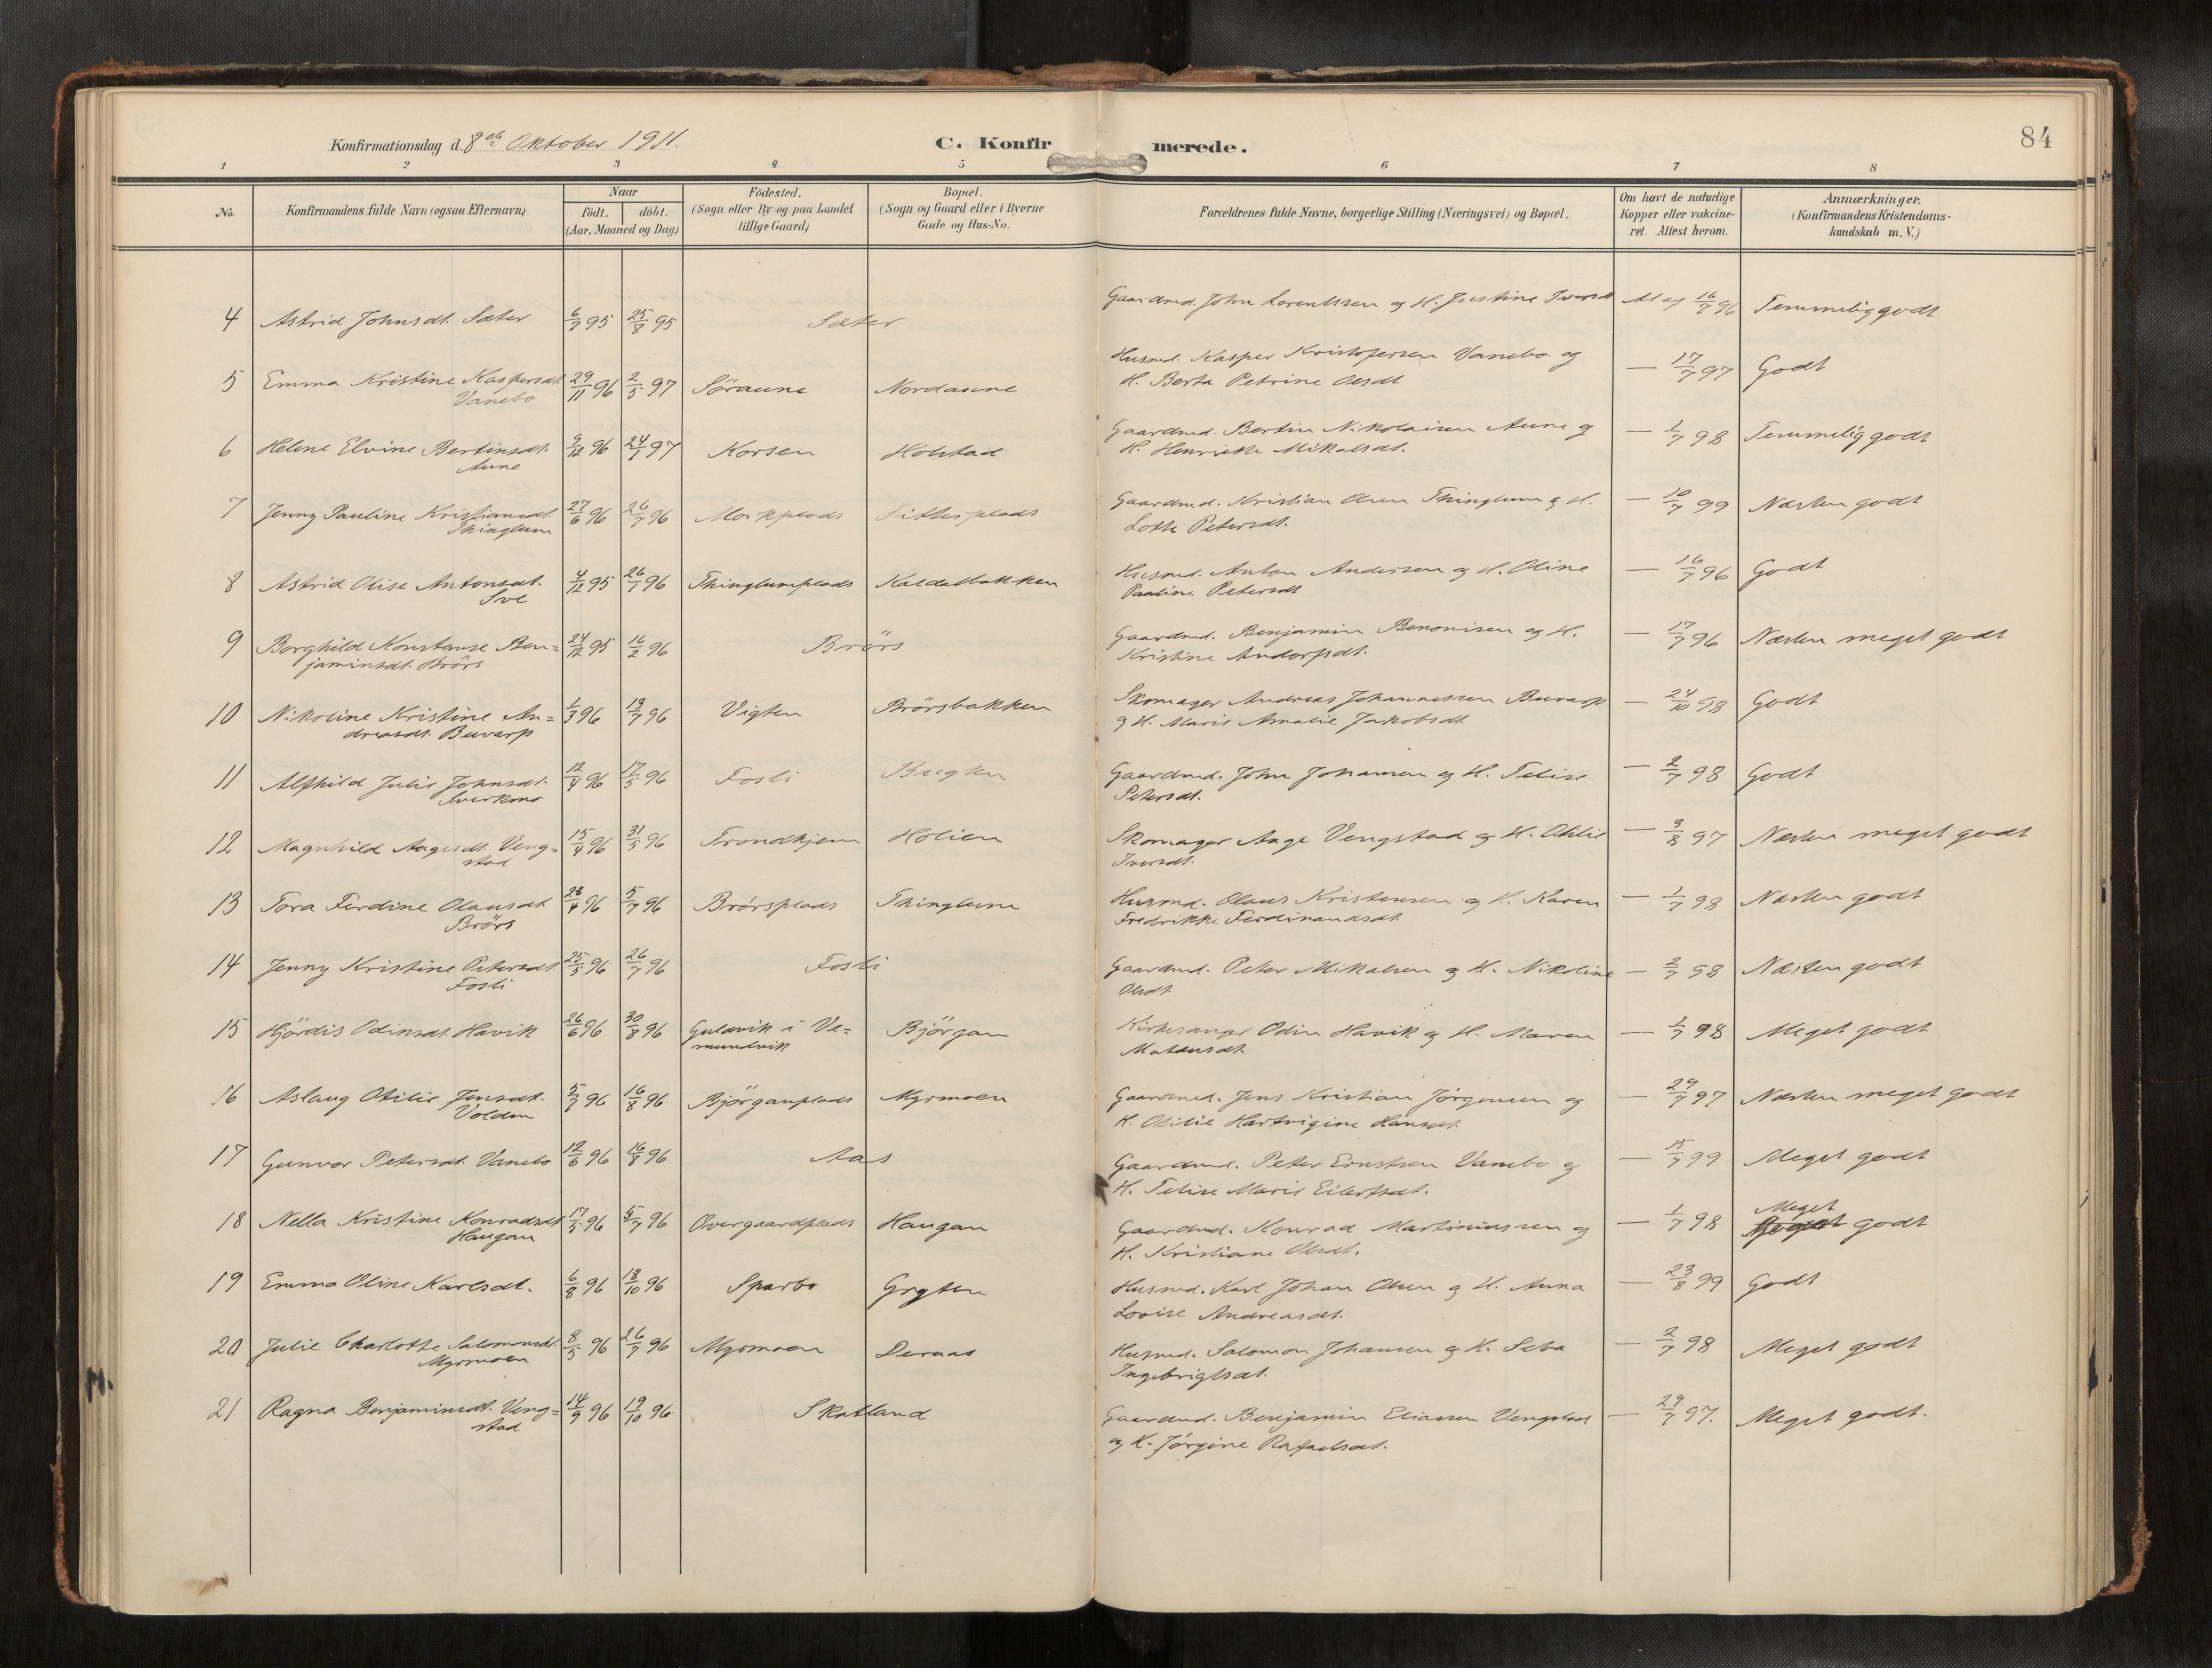 84
Konfirmationsdag d. 8de Oktober 1911.
C. Konfirmerede.
1 2 3 4 5 6 7 8
No.
Konfirmandens fulde Navn (ogsaa Efternavn)
Naar
født. døbt.
(Aar, Maaned og Dag)
Fødested.
(Sogn eller By og paa Landet
tillige Gaard)
Bopæl.
(Sogn og Gaard eller i Byerne
Gade og Hus-No.
Forældrenes fulde Navne, borgerlige Stilling (Næringsvei) og Bopæl.
Om havt de naturlige
Kopper eller vakcine-
ret. Attest herom.
Anmærkninger.
(Konfirmandens Kristendoms-
kundskab m. V.)
4 Astrid Johnsdt. Sæter 6/7 95 25/8 95 Sæter Gaardmd. John Lorentssen og H. Justine Iversdt 16/7 96 Temmelig godt
5 Emma Kristine Kaspersdt. 29/11 96 2/5 97 Søraune Nordaune Husmd. Kasper Kristofersen Vanebo og — 17/7 97 Godt
Vanebo H. Berta Petrine Olsdt
6 Helene Elvine Bertinsdt. 9/12 96 24/1 97 Korsen Holstad Gaardmd. Bertin Nikolaisen Aune og — 1/7 98 Temmelig godt
Aune H. Henriette Mikalsdt.
7 Jenny Pauline Kristiansdt. 27/6 96 26/7 96 Morkplads Gaardmd. Kristian Olsen Thinglum og H. — 10/7 99 Næsten godt
Thinglum Lotte Petersdt.
8 Astrid Olise Antonsdt. 4/12 95 26/1 96 Thinglumplads Kaldalbakken Husmd. Anton Andersen og H. Oline — 16/7 96 Godt
Sve Pauline Petersdt
9 Borghild Konstanse Ben= 24/12 95 16/2 96 Brörs Gaardmd. Benjamin Benonisen og H. — 17/7 96 Næsten meget godt
jaminsdt. Brörs Kristine Andorsdt.
10 Nikoline Kristine An= 1/3 96 13/7 96 Vigten Brörsbakken Skomager Andreas Johannessen Buvarp — 24/10 98 Godt
dreasdt. Buvarp og H. Marie Amalie Jakobsdt.
11 Alfhild Julie Johnsdt. 12/4 96 17/5 96 Fosli Gaardmd. John Johansen og H. Felise — 2/7 98 Godt
Sverkmo Petersdt.
12 Magnhild Aagesdt. Veng= 15/4 96 31/5 96 Trondhjem Holien Skomager Aage Vengstad og H. Otilie — 3/8 97 Næsten meget godt
stad Iversdt.
13 Tora Ferdine Olausdt. 28/4 96 5/7 96 Brörsplads Thinglum Husmd. Olaus Kristensen og H. Karen — 1/7 98 Næsten godt
Brörs Fredrikke Ferdinandsdt.
14 Jenny Kristine Petersdt. 25/5 96 26/7 96 Fosli Gaardmd. Peter Mikalsen og H. Nikoline — 2/7 98 Næsten godt
Fosli Olsdt.
15 Hjördis Odinsdt. Havik 26/6 96 30/8 96 Guldvik i Ve= Björgan Kirkesanger Odin Havik og H. Maren — 1/7 98 Meget godt
mundvik Mateusdt
16 Aslaug Otilie Jensdt. 5/7 96 16/8 96 Björganplads Myrmoen Gaardmd. Jens Kristian Jörgensen og — 29/7 97 Næsten meget godt
Volden H. Otilie Hartvigine Hansdt.
17 Gunvor Petersdt. Vanebo 12/6 96 16/8 96 Aas Gaardmd. Peter Ernstsen Vanebo og — 15/7 99 Meget godt
H. Felise Marie Eilertsdt.
18 Nella Kristine Konradsdt 17/5 96 5/7 96 Overgaardplads Haugan Gaardmd. Konrad Martiniussen og — 1/7 98 Meget godt
Haugan H. Kristiane Olsdt.
19 Emma Oline Karlsdt. 6/8 96 18/10 96 Sparbo Gryten Husmd. Karl Johan Olsen og H. Anna — 23/8 99 Godt
Lovise Andreasdt.
20 Julie Charlotte Salomonsdt. 8/5 96 26/7 96 Myrmoen Deraas Husmd. Salomon Johansen og H. Seba — 2/7 98 Meget godt
Myrmoen Ingebrigtsdt.
21 Ragna Benjaminsdt. Veng= 14/9 96 19/10 96 Skatland Gaardmd. Benjamin Eliassen Vengstad — 29/7 97. Meget godt.
stad og H. Jörgine Rafaelsdt.